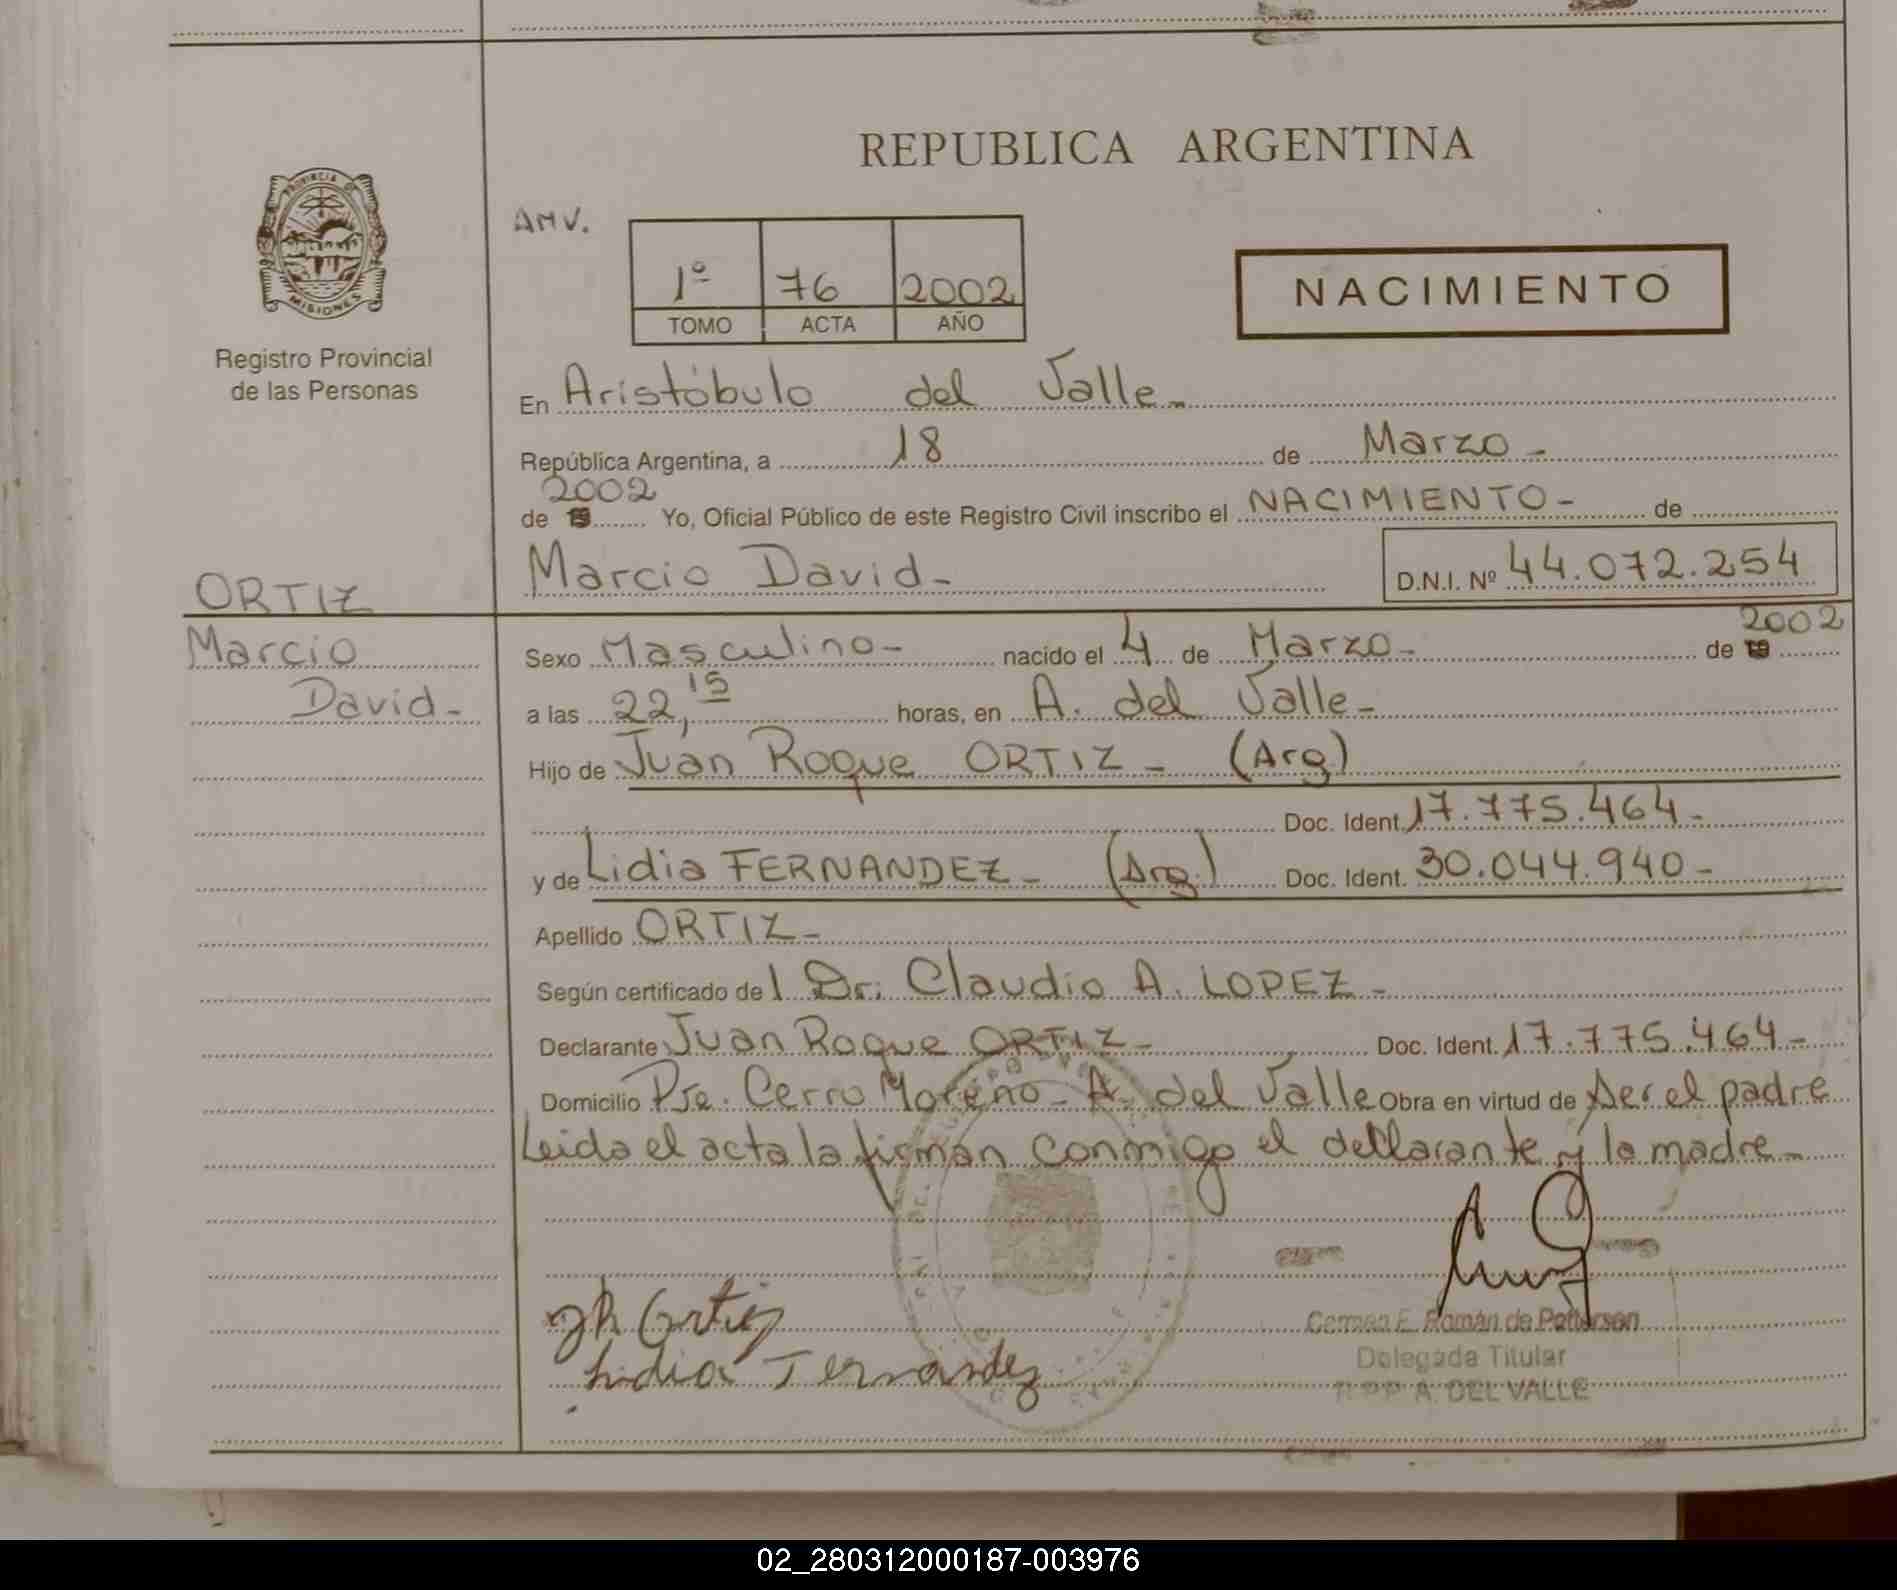 REPUBLICA ARGENTINA
PROVINCIA DE
MISIONES
Registro Provincial
de las Personas
AMV.
1º 76 2002
TOMO ACTA AÑO
NACIMIENTO
En Aristóbulo del Valle -
República Argentina, a 18 de Marzo -
2002
de 19 Yo, Oficial Público de este Registro Civil inscribo el NACIMIENTO - de
Marcio David - D.N.I. Nº 44.072.254
ORTIZ
Marcio
David -
2002
Sexo Masculino - nacido el 4 de Marzo - de 19
a las 22,15 horas, en A. del Valle -
Hijo de Juan Roque ORTIZ - (Arg)
Doc. Ident. 17.775.464 -
y de Lidia FERNANDEZ - (Arg.) Doc. Ident. 30.044.940 -
Apellido ORTIZ -
Según certificado del Dr. Claudio A. LOPEZ -
Declarante Juan Roque ORTIZ - Doc. Ident. 17.775.464 -
Domicilio Pje. Cerro Moreno - A. del Valle Obra en virtud de ser el padre
Leida el acta la firman conmigo el declarante y la madre -
Ortiz
Lidia Fernandez
Carmen E. Román de Petterson
Delegada Titular
R.P.P. A. DEL VALLE
02_280312000187-003976